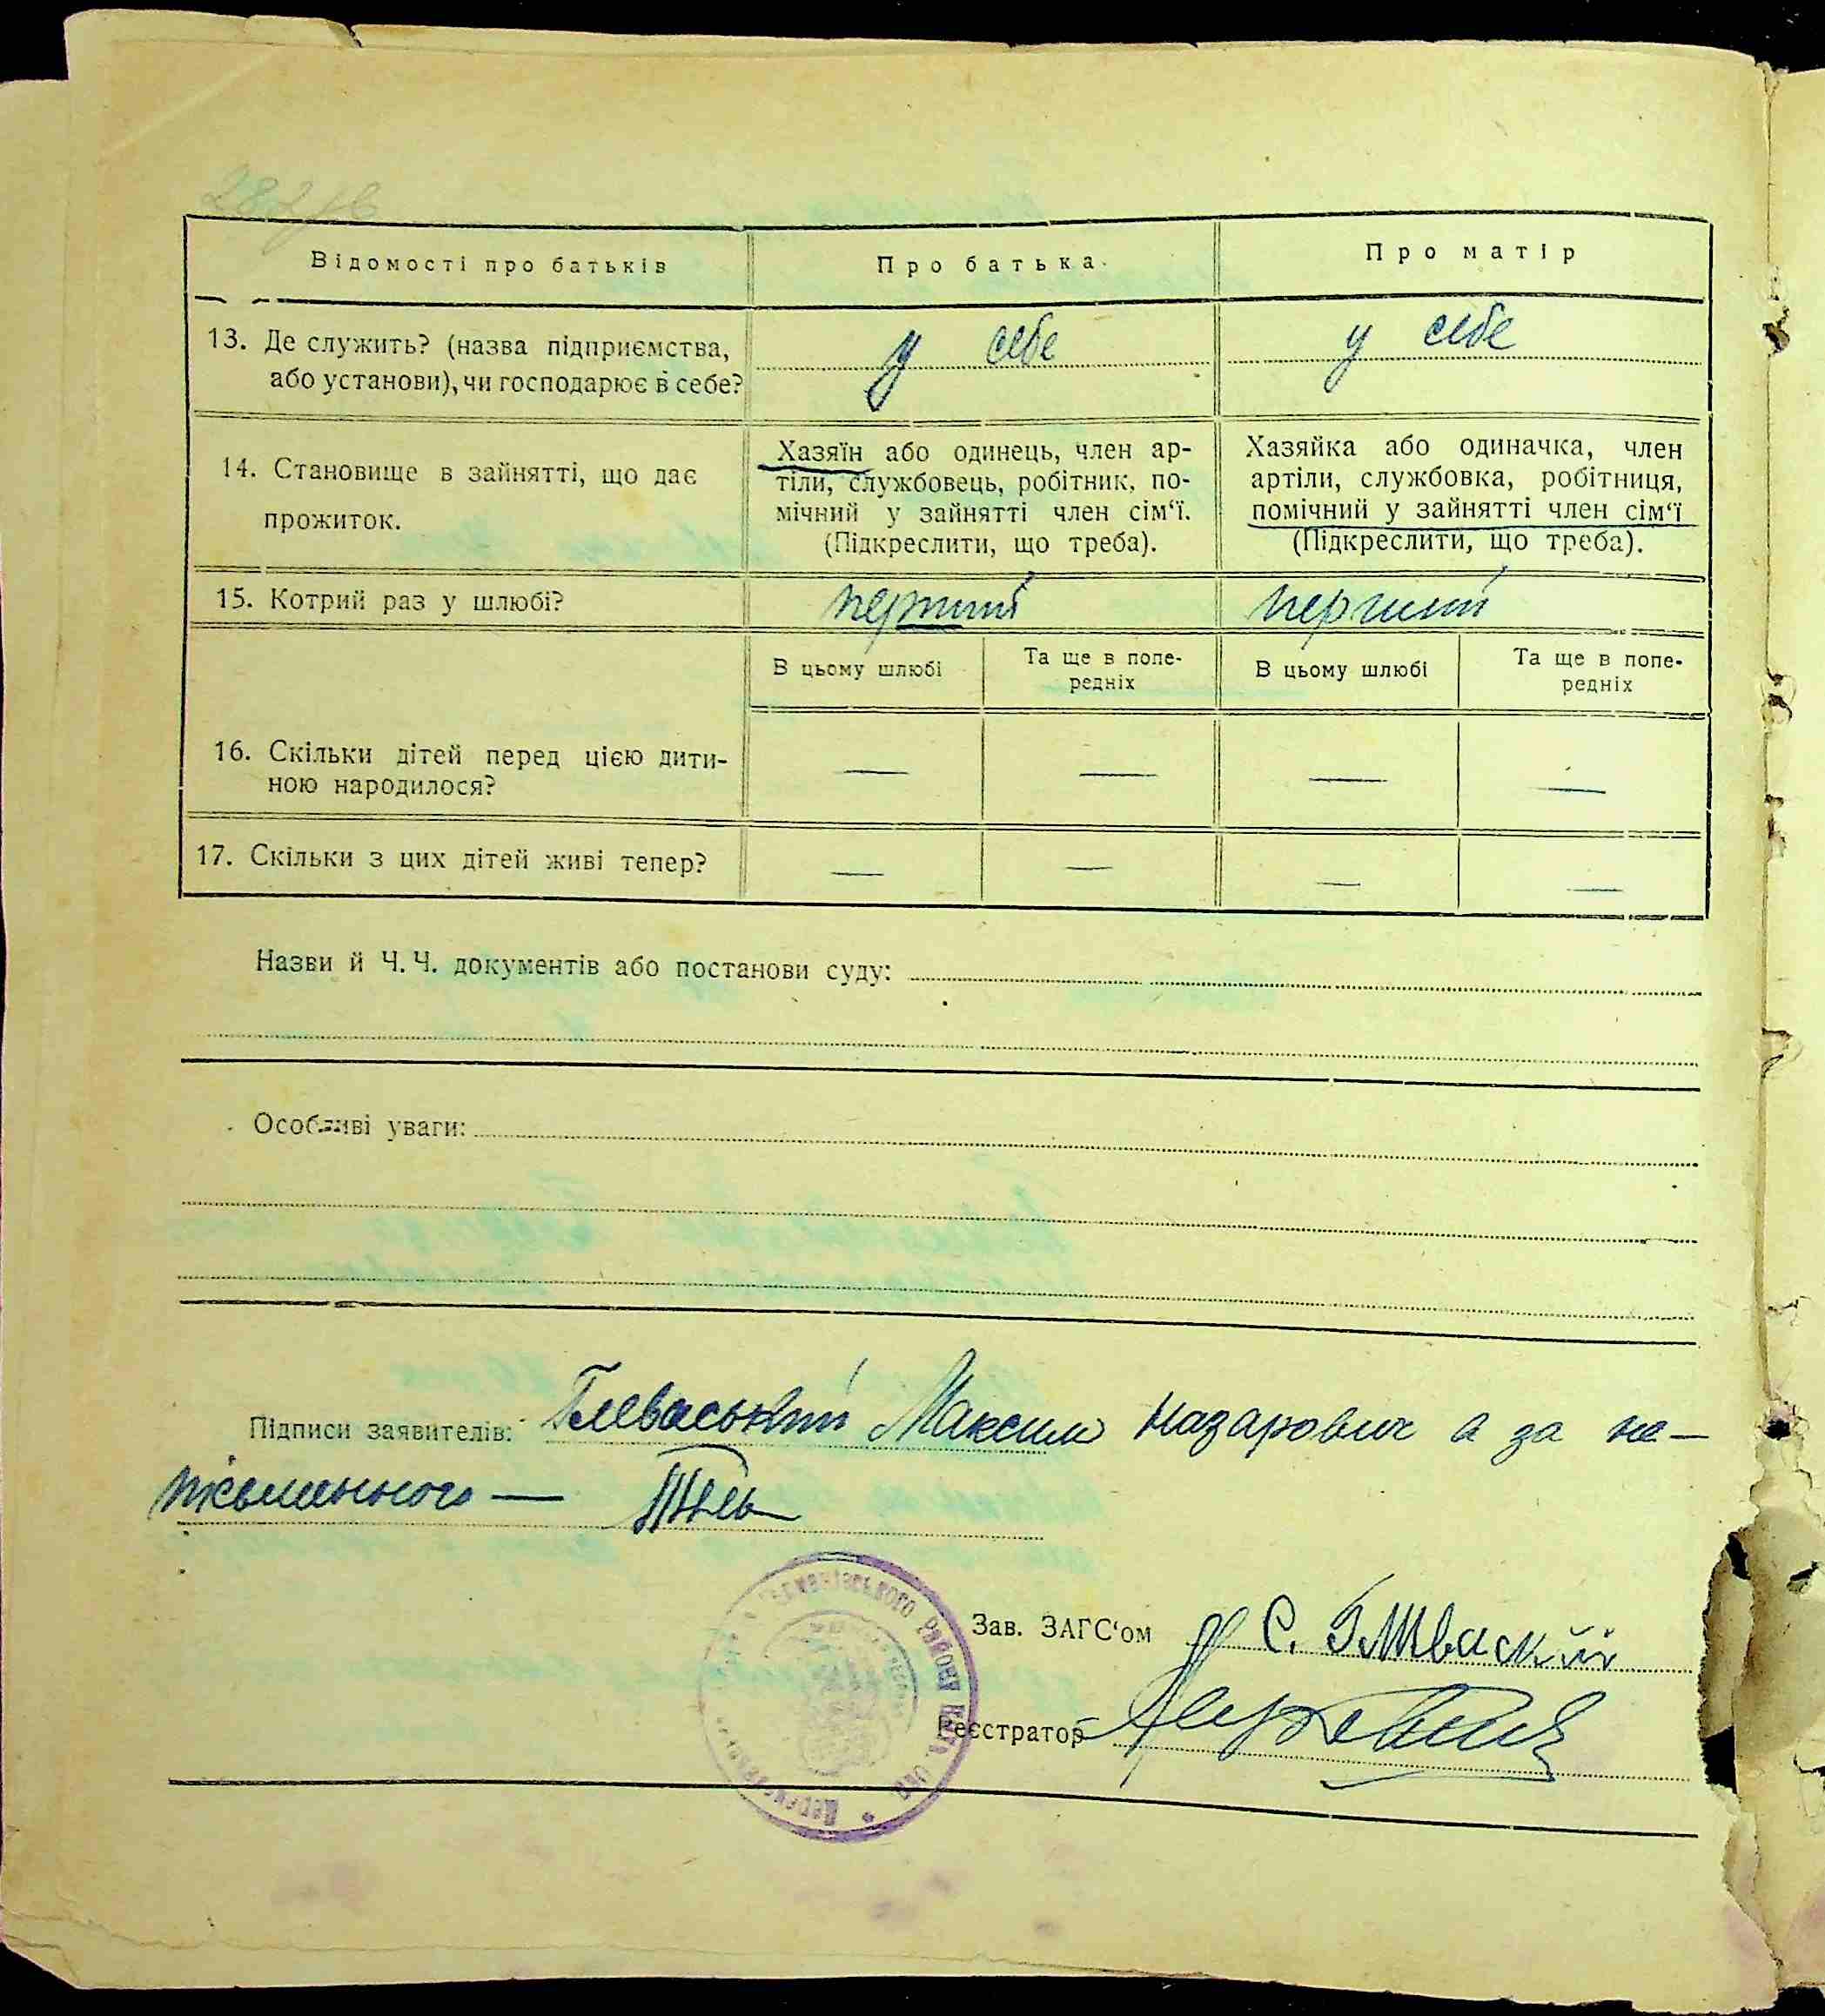 Відомості про батьків
Про батька
Про матір
13. Де служить? (назва підприємства,
або установи), чи господарює в себе?
у себе
у себе
14. Становище в зайнятті, що дає
прожиток.
Хазяїн або одинець, член ар-
тіли, службовець, робітник, по-
мічний у зайнятті член сім‘ї.
(Підкреслити, що треба).
Хазяйка або одиначка, член
артіли, службовка, робітниця,
помічний у зайнятті член сім‘ї
(Підкреслити, що треба).
15. Котрий раз у шлюбі?
перший
перший
В цьому шлюбі
Та ще в попе-
редніх
В цьому шлюбі
Та ще в попе-
редніх
16. Скільки дітей перед цією дити-
ною народилося?
— — — —
17. Скільки з цих дітей живі тепер?
— — — —
Назви й Ч. Ч. документів або постанови суду:
Особливі уваги:
Підписи заявителів: Глеваський Максим Назарович а за не-
письменного —
Зав. ЗАГС‘ом С.
Реєстратор
району